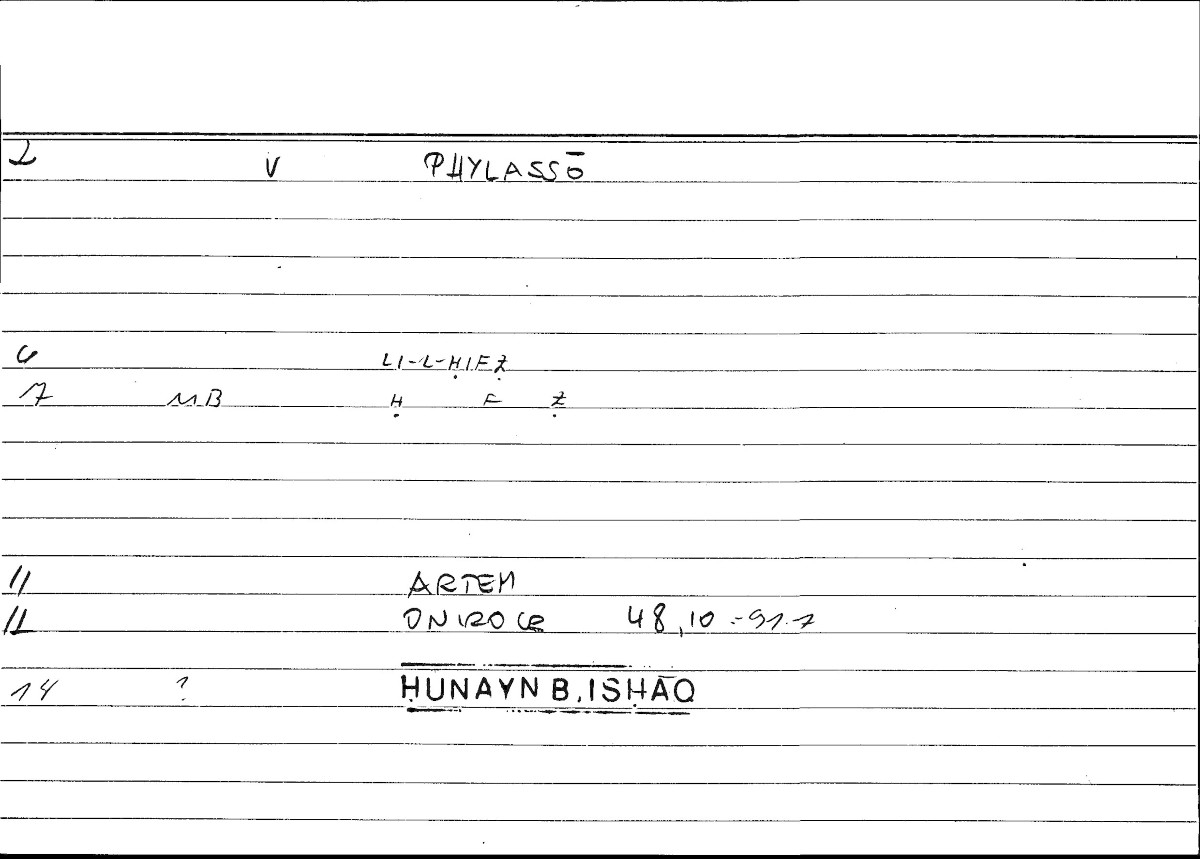 2 V PHYLASSŌ
6 LI-L-ḤIFẒ
7 MB Ḥ F Ẓ
11 ARTEM
12 ONIROCR 48,10 - 91.7
14 ? ḤUNAYN B. ISḤĀQ